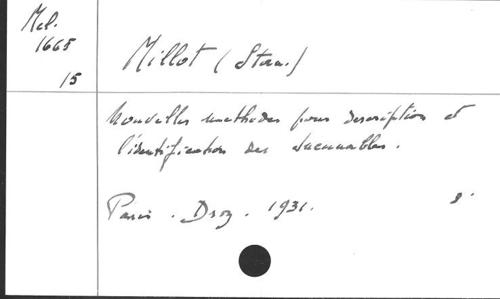 Mel.
1665
15
Millot (Stan.)
Nouvelles methodes pour description et
l'identification des incunables.
Paris. Droz. 1931. 8°